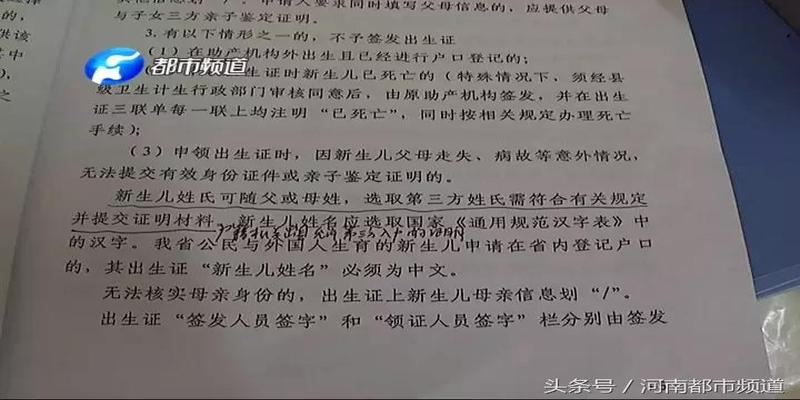 其他信息划“/”。申请人要求同时填写父母信息的，应提供父母
与子女三方亲子鉴定证明。
3. 有以下情形之一的，不予签发出生证
（1）在助产机构外出生且已经进行户口登记的；
生证时新生儿已死亡的（特殊情况下，须经县
级卫生计生行政部门审核同意后，由原助产机构签发，并在出生
证三联单每一联上均注明“已死亡”，同时按相关规定办理死亡
手续）；
（3）申领出生证时，因新生儿父母走失、病故等意外情况，
无法提交有效身份证件或亲子鉴定证明的。
新生儿姓氏可随父或母姓，选取第三方姓氏需符合有关规定
并提交证明材料，新生儿姓名应选取国家《通用规范汉字表》中
的汉字。我省公民与外国人生育的新生儿申请在省内登记户口
的，其出生证“新生儿姓名”必须为中文。
无法核实母亲身份的，出生证上新生儿母亲信息划“/”。
出生证“签发人员签字”和“领证人员签字”栏分别由签发
的，
供该
其中
之
都市频道
头条号 / 河南都市频道